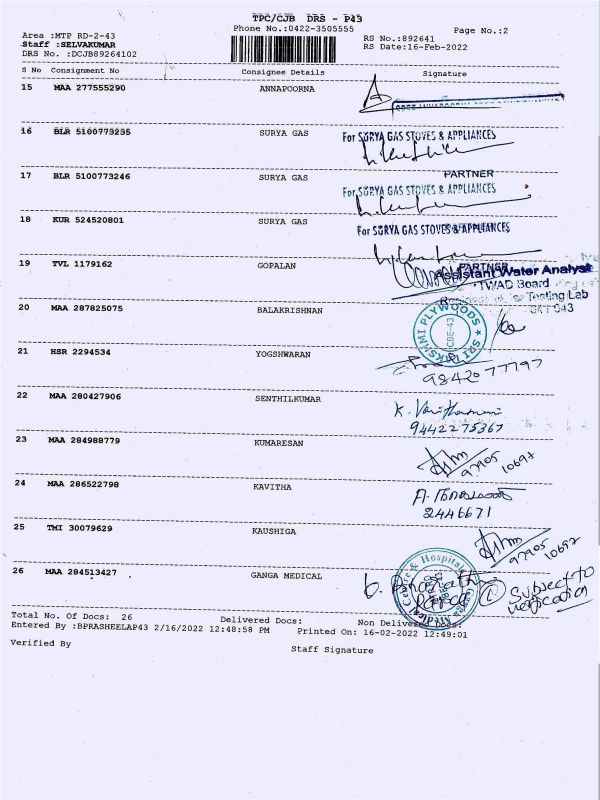 TPC/CJB DRS - P43
Phone No.:0422-3505555
Page No.:2
Area :MTP RD-2-43
RS No.:892641
Staff :SELVAKUMAR
RS Date:16-Feb-2022
DRS No. :DCJB89264102
S No Consignment No Consignee Details Signature
15 MAA 277555290 ANNAPOORNA
16 BLR 5100773235 SURYA GAS For SURYA GAS STOVES & APPLIANCES
PARTNER
17 BLR 5100773246 SURYA GAS For SURYA GAS STOVES & APPLIANCES
18 KUR 524520801 SURYA GAS For SURYA GAS STOVES & APPLIANCES
PARTNER
19 TVL 1179162 GOPALAN Assistant Water Analyst
TWAD Board
Testing Lab
20 MAA 287825075 BALAKRISHNAN SRI LAKSHMI PLYWOODS CBE-43
21 HSR 2294534 YOGSHWARAN
98420 77797
22 MAA 280427906 SENTHILKUMAR
9442275367
23 MAA 284988779 KUMARESAN
97905 10697
24 MAA 286522798 KAVITHA
2446671
25 TMI 30079629 KAUSHIGA
97905 10697
26 MAA 284513427 GANGA MEDICAL Ganga Medical Centre & Hospitals
Subject to
verification
Total No. Of Docs: 26 Delivered Docs: Non Delivered Docs:
Entered By :BPRASHEELAP43 2/16/2022 12:48:58 PM Printed On: 16-02-2022 12:49:01
Verified By
Staff Signature